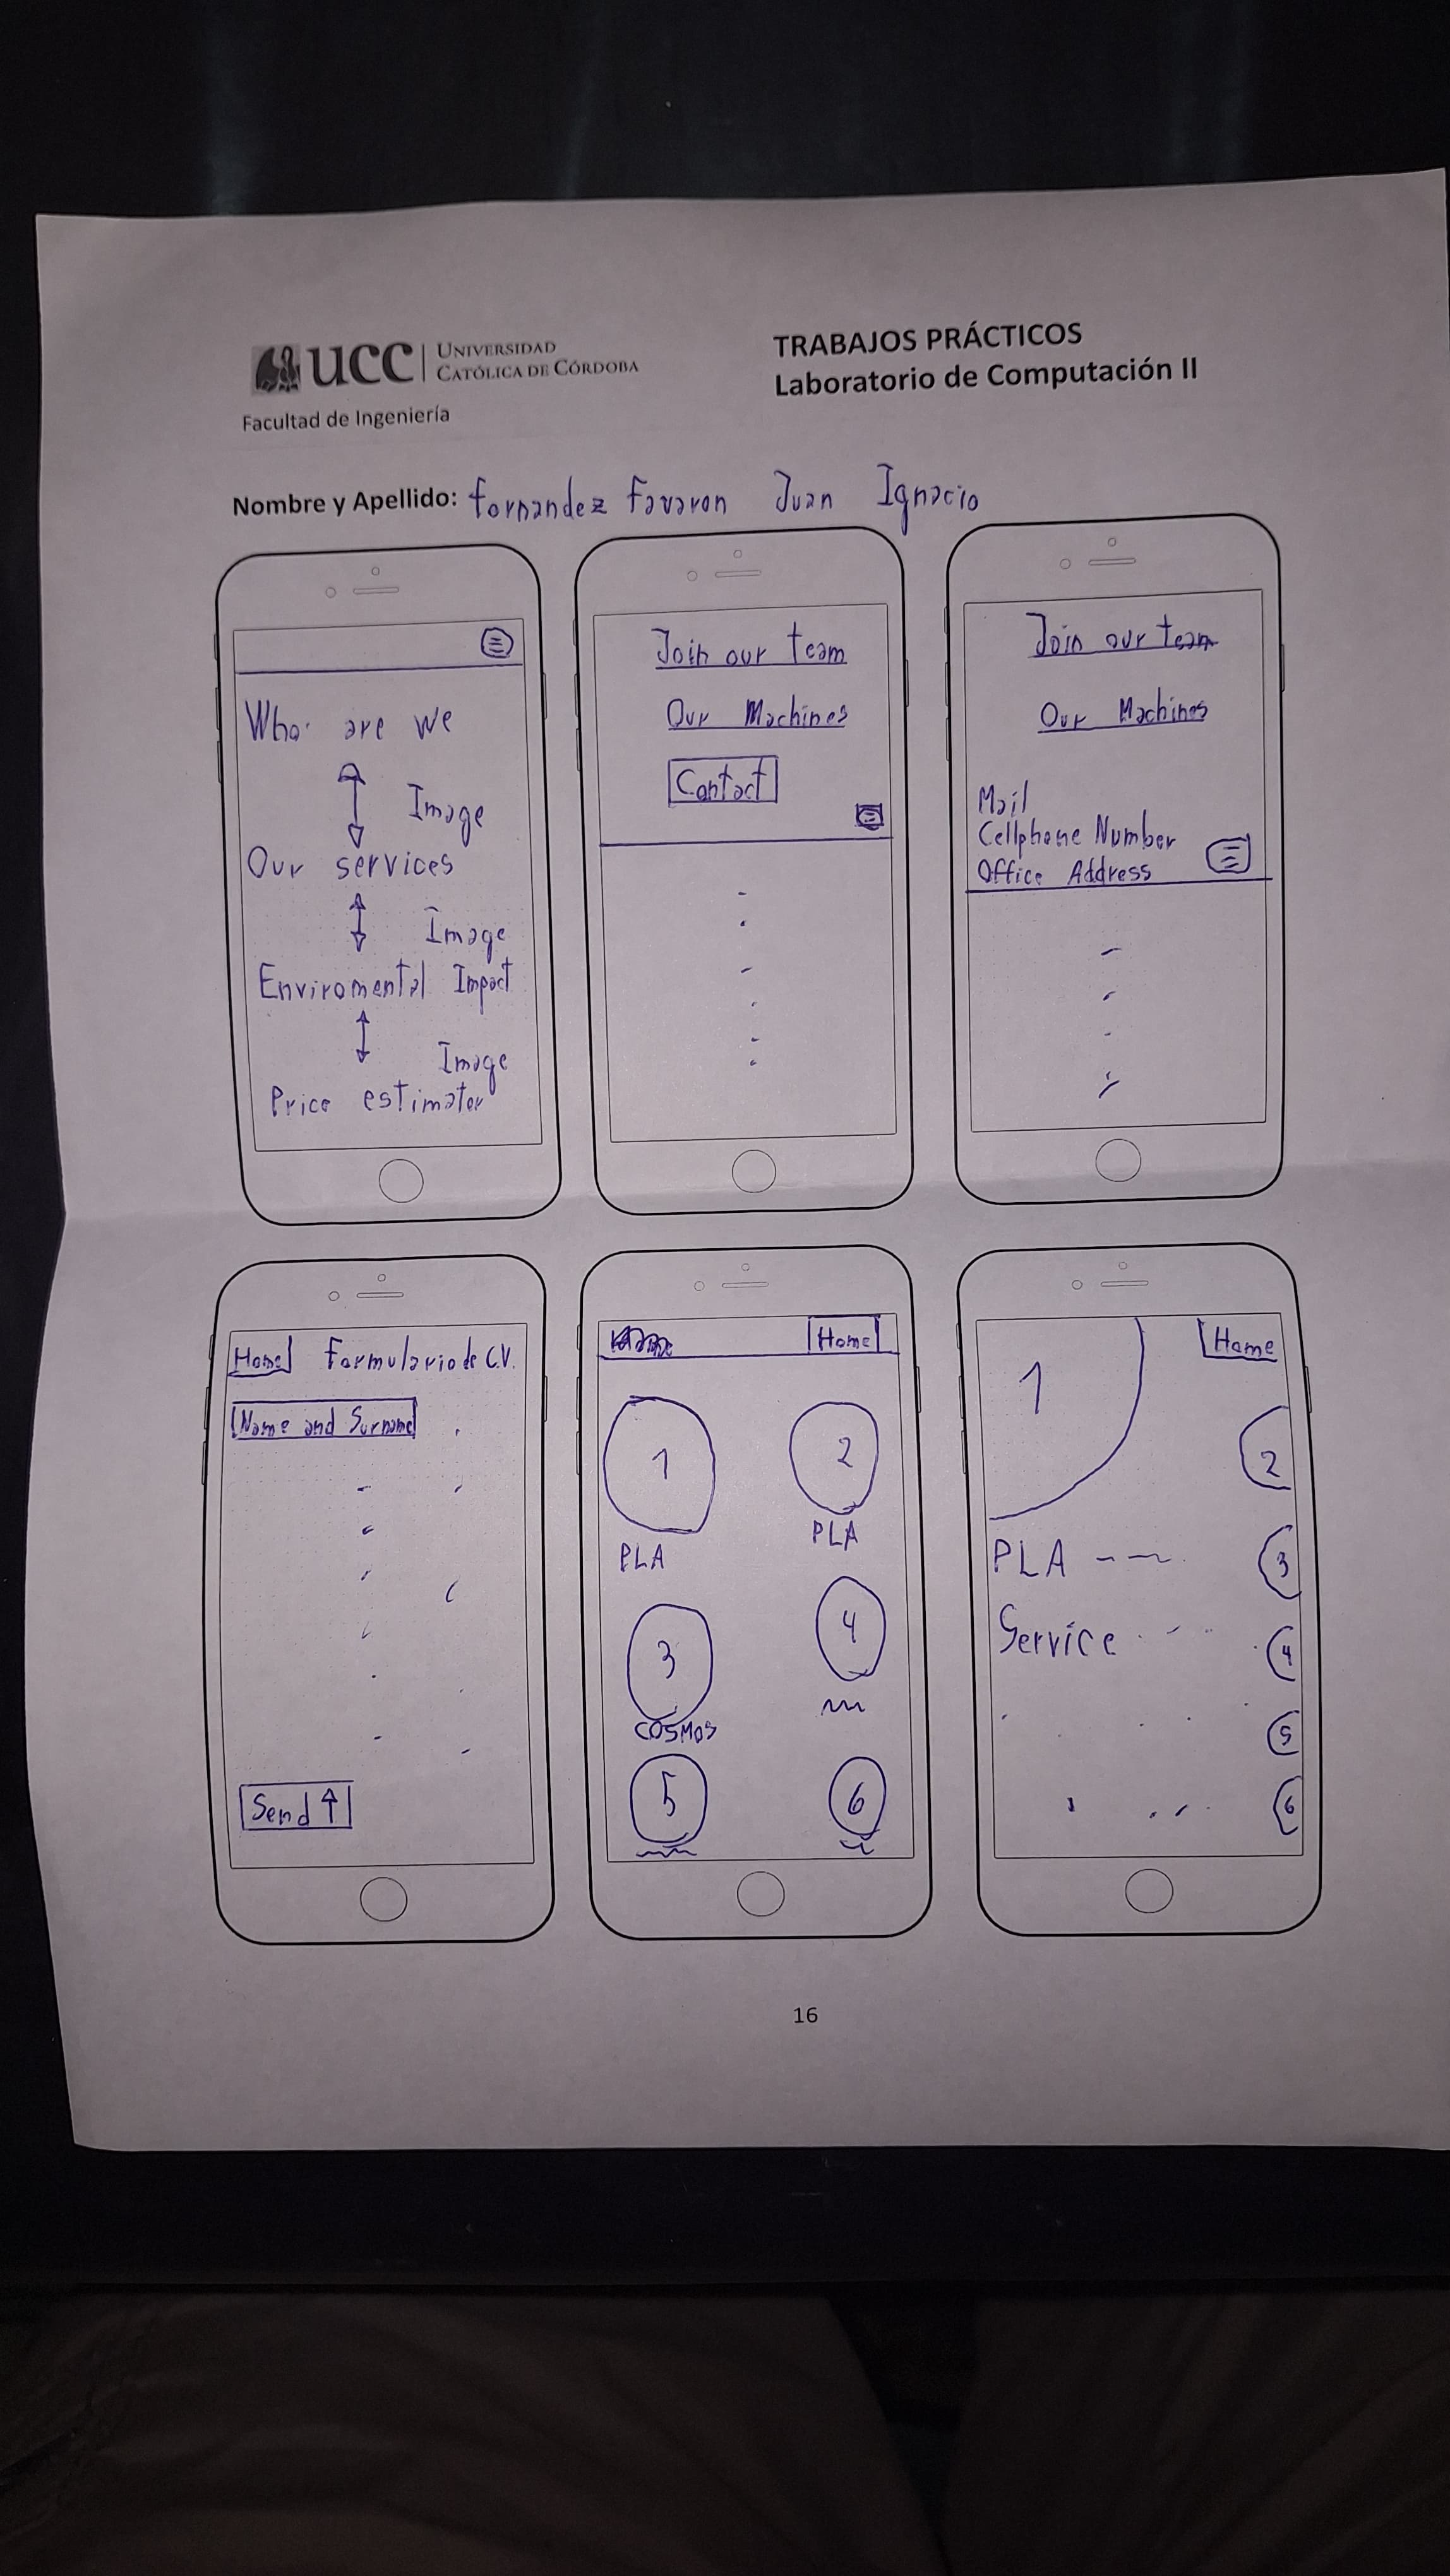 UCC UNIVERSIDAD
CATÓLICA DE CÓRDOBA
Facultad de Ingeniería
TRABAJOS PRÁCTICOS
Laboratorio de Computación II
Nombre y Apellido: Fernandez Favaron Juan Ignacio
Who are we
Image
Our services
Image
Enviromental Impact
Image
Price estimator
Join our team
Our Machines
Contact
Join our team
Our Machines
Mail
Cellphone Number
Office Address
Home Formulario de C.V.
Name and Surname
Send ↑
Home
1 2
PLA PLA
3 4
COSMOS
5 6
1 Home
2
PLA 3
Service 4
5
6
16